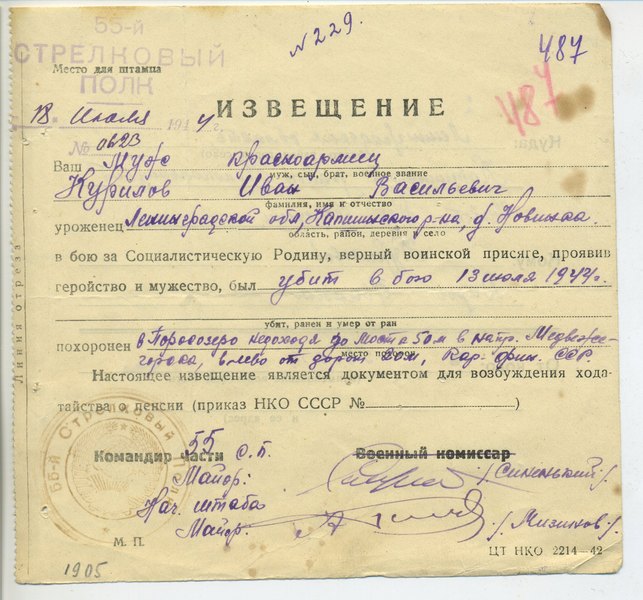 55-й
СТРЕЛКОВЫЙ
ПОЛК
Место для штампа
№ 229.
487
487
18 Июля 1944 г.
ИЗВЕЩЕНИЕ
№ 0623
Ваш муж красноармеец
муж, сын, брат, военное звание
Курилов Иван Васильевич
фамилия, имя и отчество
уроженец Ленинградской обл, Капшинского р-на, д. Новинка
область, район, деревня и село
в бою за Социалистическую Родину, верный воинской присяге, проявив
геройство и мужество, был убит в бою 13 июля 1944г.
убит, ранен и умер от ран
похоронен в Породозеро недоходя до моста 50 м в напр. Медвеже-
горска, влево от дороги 20м, Кар-фин. ССР
место похорон
Настоящее извещение является документом для возбуждения хода-
тайства о пенсии (приказ НКО СССР № )
Командир части 55 с.п. Военный комиссар
Майор: /Синенький/.
Нач. штаба
Майор. /Мизинов/.
55-й Стрелковый Полк
М. П.
ЦТ НКО 2214—42
1905
Линия отреза